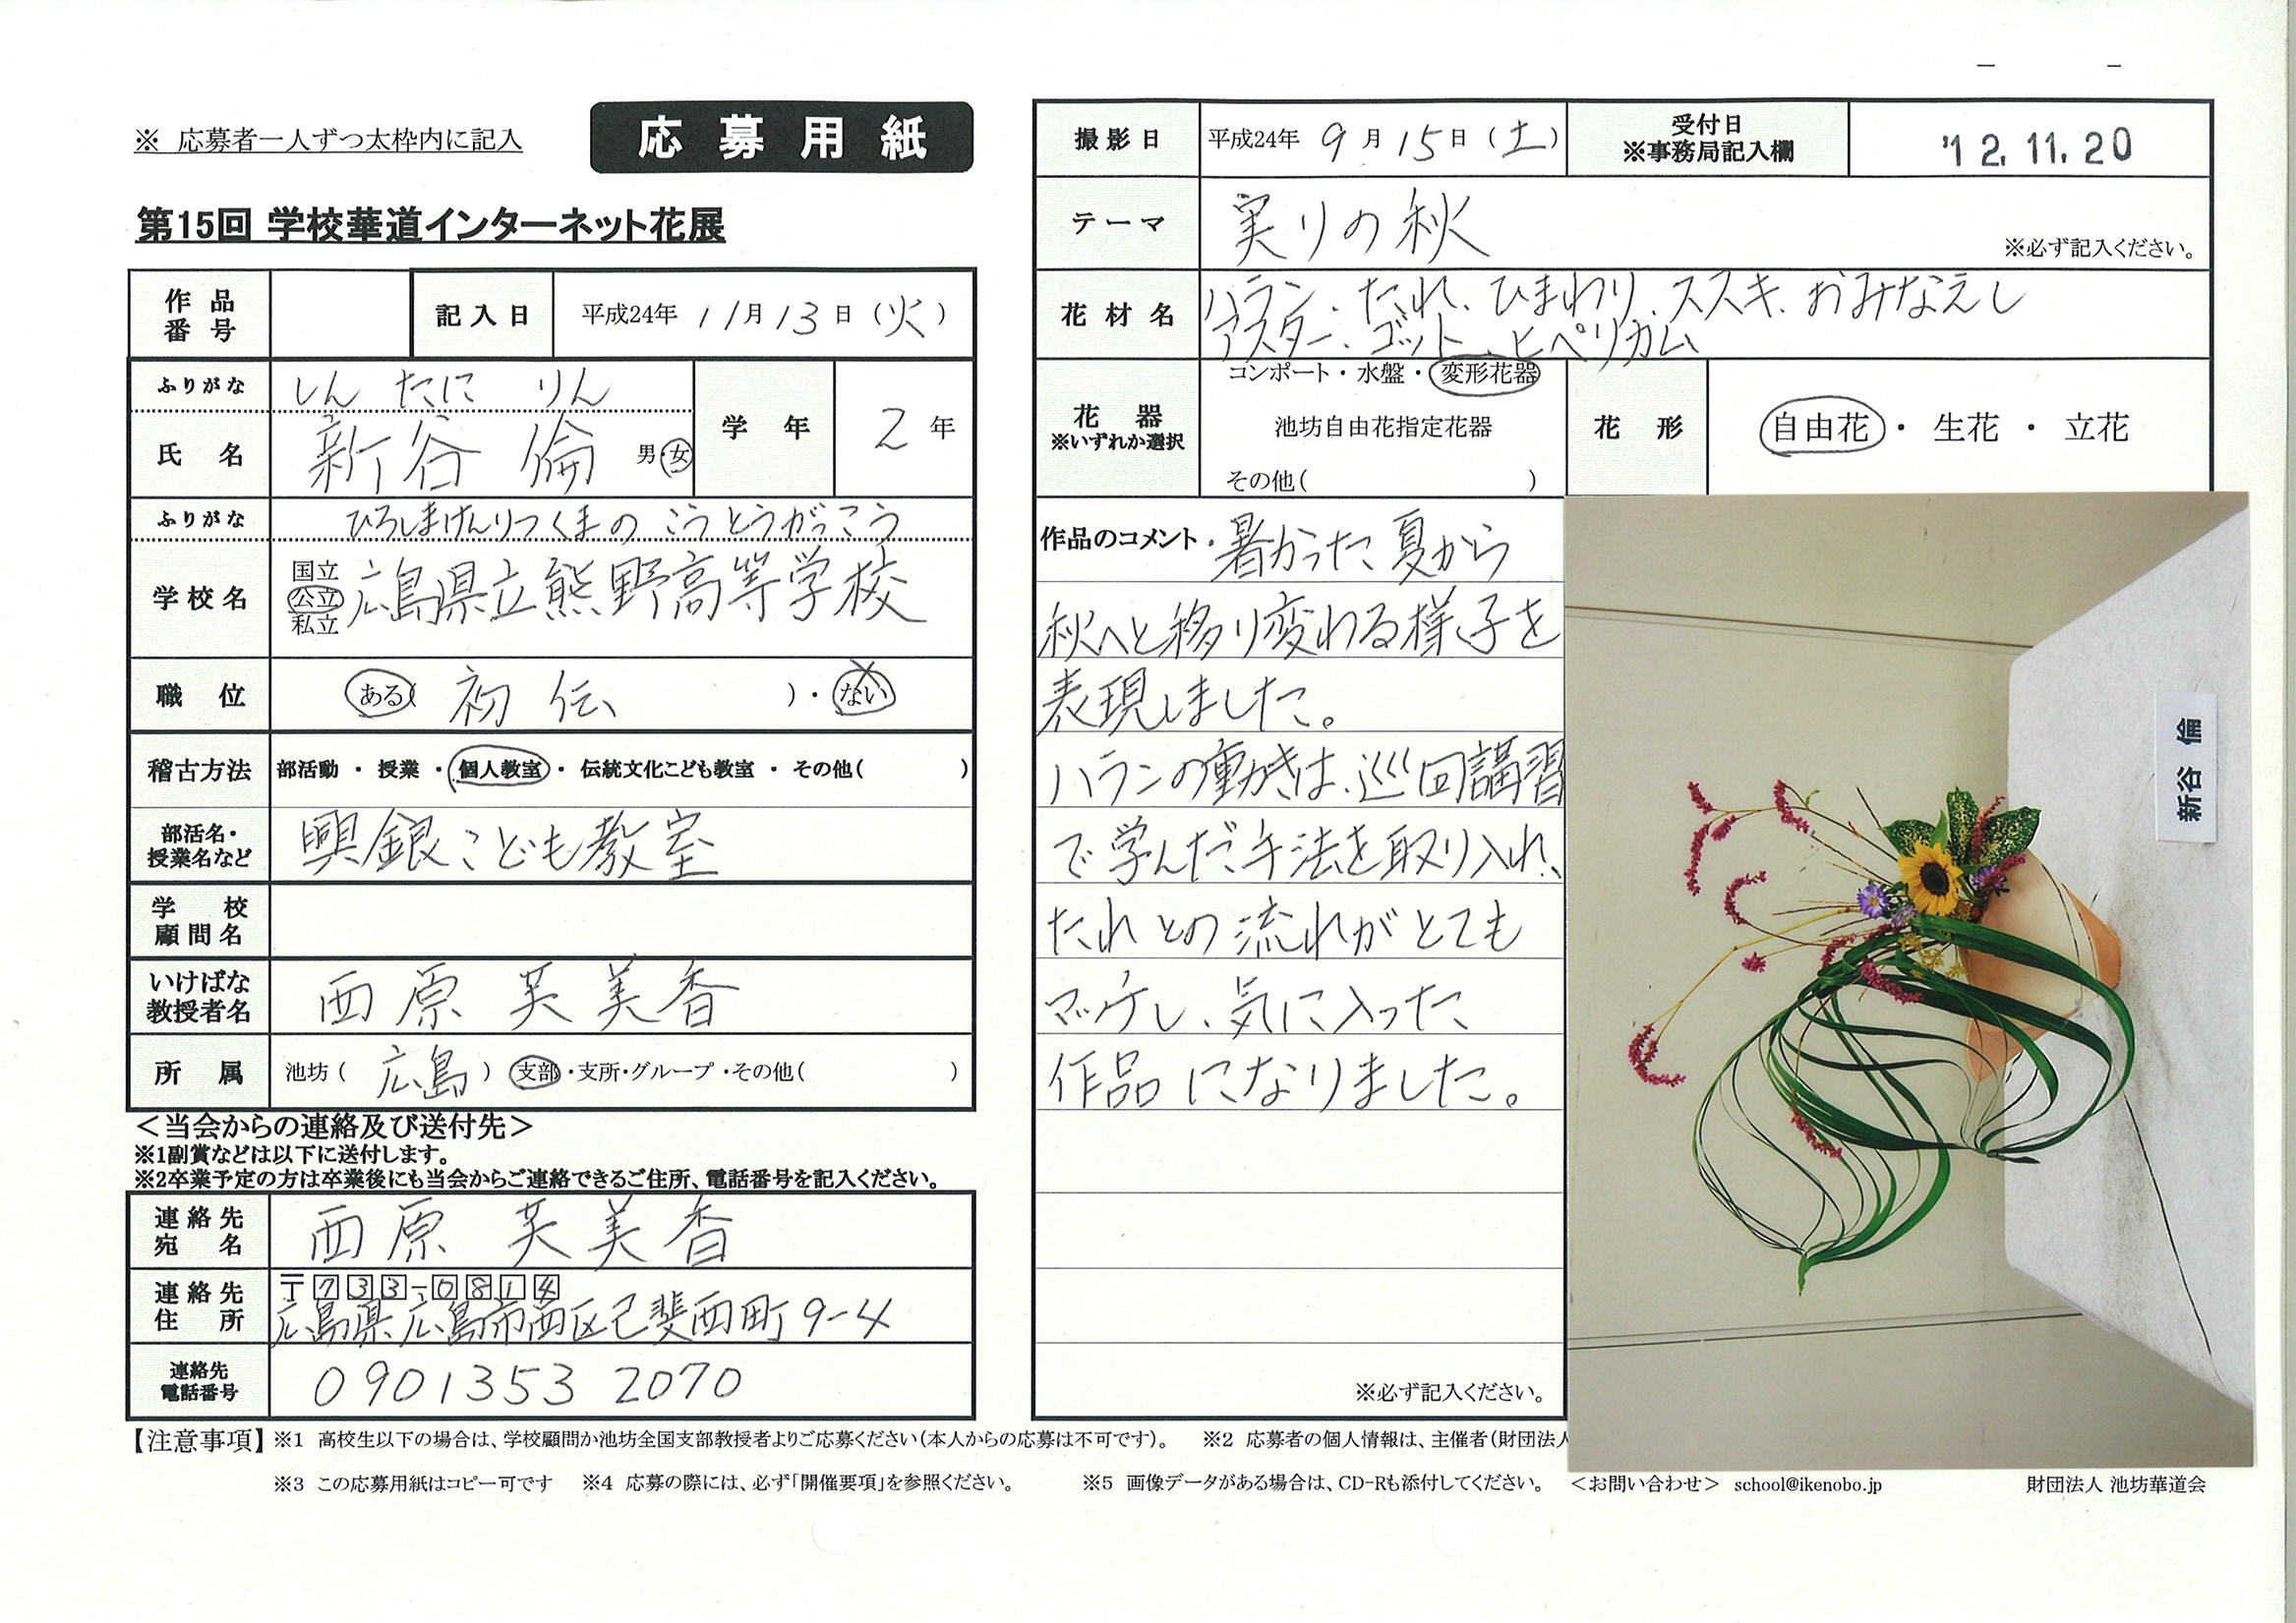 ※ 応募者一人ずつ太枠内に記入
応募用紙
第15回 学校華道インターネット花展
作品番号
記入日 平成24年 11月13日(火)
ふりがな しん たに りん
氏名 新谷 倫 男・女
学年 2年
ふりがな ひろしまけんりつくまの こうとうがっこう
学校名 国立 公立 私立 広島県立熊野高等学校
職位 ある( 初伝 )・ない
稽古方法 部活動・授業・個人教室・伝統文化こども教室・その他( )
部活名・授業名など 興銀こども教室
学校顧問名
いけばな教授者名 西原 芙美香
所属 池坊( 広島 ) 支部・支所・グループ・その他( )
<当会からの連絡及び送付先>
※1副賞などは以下に送付します。
※2卒業予定の方は卒業後にも当会からご連絡できるご住所、電話番号を記入ください。
連絡先宛名 西原 芙美香
連絡先住所 〒733-0814
広島県広島市西区己斐西町9-4
連絡先電話番号 0901353 2070
撮影日 平成24年 9月15日(土)
受付日 ※事務局記入欄 '12.11.20
テーマ 実りの秋 ※必ず記入ください。
花材名 ハラン、たれ、ひまわり、ススキ、おみなえし
アスター、ゴット、ヒペリカム
花器 ※いずれか選択 コンポート・水盤・変形花器
池坊自由花指定花器
その他( )
花形 自由花・生花・立花
作品のコメント・暑かった夏から
秋へと移り変わる様子を
表現しました。
ハランの動きは、巡回講習
で学んだ手法を取り入れ、
たれとの流れがとても
マッチし、気に入った
作品になりました。
※必ず記入ください。
新谷 倫
【注意事項】※1 高校生以下の場合は、学校顧問か池坊全国支部教授者よりご応募ください(本人からの応募は不可です)。 ※2 応募者の個人情報は、主催者(財団法人
※3 この応募用紙はコピー可です ※4 応募の際には、必ず「開催要項」を参照ください。 ※5 画像データがある場合は、CD-Rも添付してください。 <お問い合わせ> school@ikenobo.jp 財団法人 池坊華道会